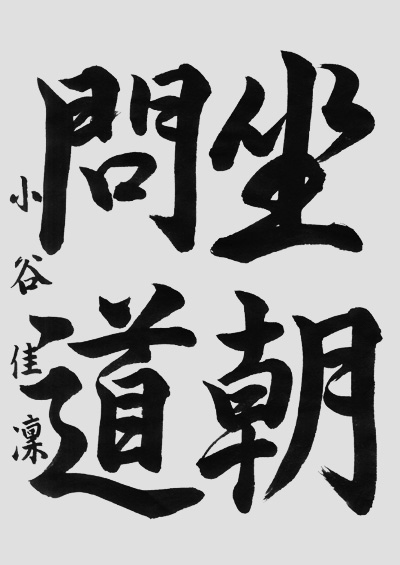 坐朝
問道
小谷佳凜